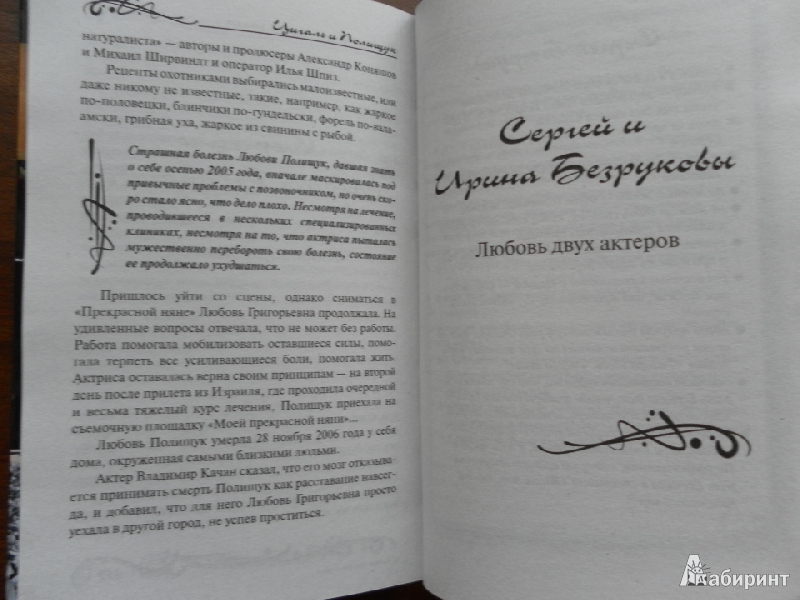 Цигаль и Полищук
натуралиста» — авторы и продюсеры Александр Коняшов
и Михаил Ширвиндт и оператор Илья Шпиз.
Рецепты охотниками выбирались малоизвестные, или
даже никому не известные, такие, например, как жаркое
по-половецки, блинчики по-гундельски, форель по-вала-
амски, грибная уха, жаркое из свинины с рыбой.
Страшная болезнь Любови Полищук, давшая знать
о себе осенью 2005 года, вначале маскировалась под
привычные проблемы с позвоночником, но очень ско-
ро стало ясно, что дело плохо. Несмотря на лечение,
проводившееся в нескольких специализированных
клиниках, несмотря на то, что актриса пыталась
мужественно перебороть свою болезнь, состояние
ее продолжало ухудшаться.
Пришлось уйти со сцены, однако сниматься в
«Прекрасной няне» Любовь Григорьевна продолжала. На
удивленные вопросы отвечала, что не может без работы.
Работа помогала мобилизовать оставшиеся силы, помо-
гала терпеть все усиливающиеся боли, помогала жить.
Актриса оставалась верна своим принципам — на второй
день после прилета из Израиля, где проходила очередной
и весьма тяжелый курс лечения, Полищук приехала на
съемочную площадку «Моей прекрасной няни»...
Любовь Полищук умерла 28 ноября 2006 года у себя
дома, окруженная самыми близкими людьми.
Актер Владимир Качан сказал, что его мозг отказыва-
ется принимать смерть Полищук как расставание навсег-
да, и добавил, что для него Любовь Григорьевна просто
уехала в другой город, не успев проститься.
Сергей и
Ирина Безруковы
Любовь двух актеров
Лабиринт